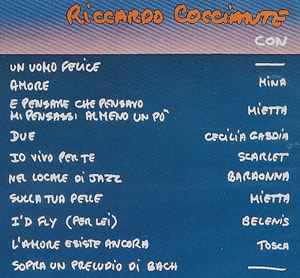 RICCARDO COCCIANTE
CON
UN UOMO FELICE
AMORE MINA
E PENSARE CHE PENSAVO
MI PENSASSI ALMENO UN PO' MIETTA
DUE CECILIA GASDIA
IO VIVO PER TE SCARLET
NEL LOCALE DI JAZZ BARAONNA
SULLA TUA PELLE MIETTA
I'D FLY (PER LEI) BELENIS
L'AMORE ESISTE ANCORA TOSCA
SOPRA UN PRELUDIO DI BACH